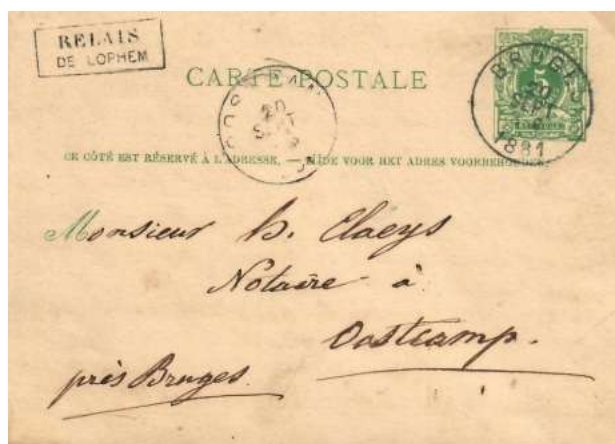 RELAIS
DE LOPHEM
CARTE POSTALE
5
BRUGES
20
SEPT
1881
20
SEPT
CE CÔTÉ EST RÉSERVÉ À L'ADRESSE. — ZIJDE VOOR HET ADRES VOORBEHOUDEN.
Monsieur H. Claeys
Notaire à
Oostcamp.
près Bruges.